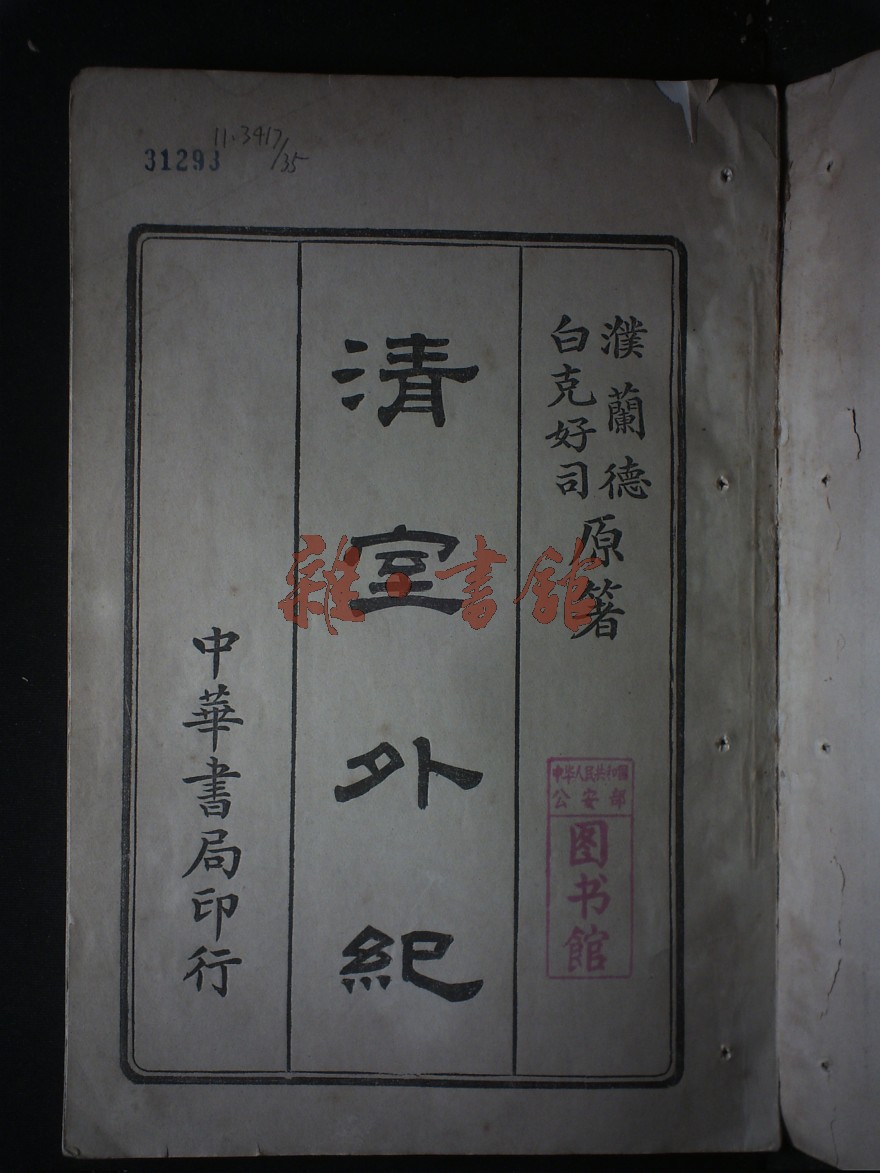 11.3417/35
31293
濮蘭德
白克好司
原箸
清室外紀
中華書局印行
中华人民共和國
公安部
图书馆
雜·書館